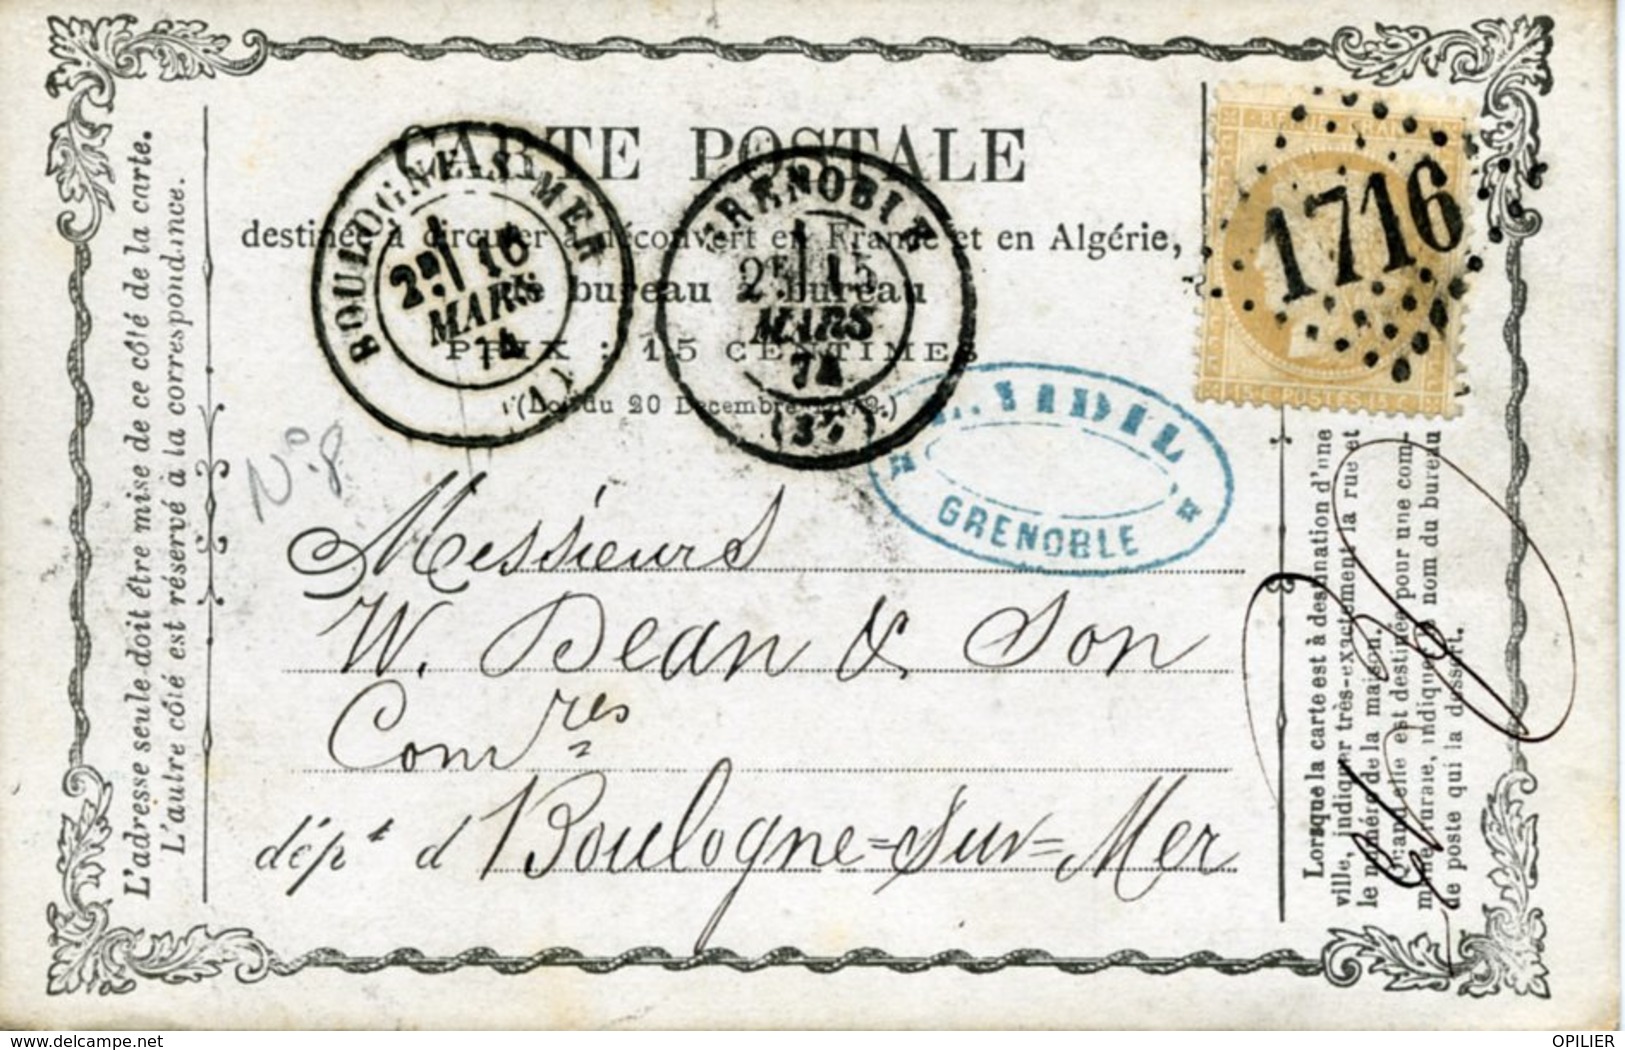 CARTE POSTALE
destinée à circuler à découvert en France et en Algérie,
bureau à bureau
PRIX : 15 CENTIMES
(Loi du 20 Décembre 1872.)
BOULOGNE S MER
2E 16
MARS
74
GRENOBLE
2E 15
MARS
74
(37)
REPUB FRANC
1716
15 C POSTES 15 C
VIDIL
GRENOBLE
No. 8
Messieurs
W. Dean & Son
Comres
dépt d Boulogne=sur=Mer
L'adresse seule doit être mise de ce côté de la carte.
L'autre côté est réservé à la correspondance.
Lorsque la carte est à destination d'une
ville, indiquer très-exactement la rue et
le numéro de la maison.
Quand elle est destinée pour une com-
mune rurale, indiquer le nom du bureau
de poste qui la dessert.
www.delcampe.net
OPILIER